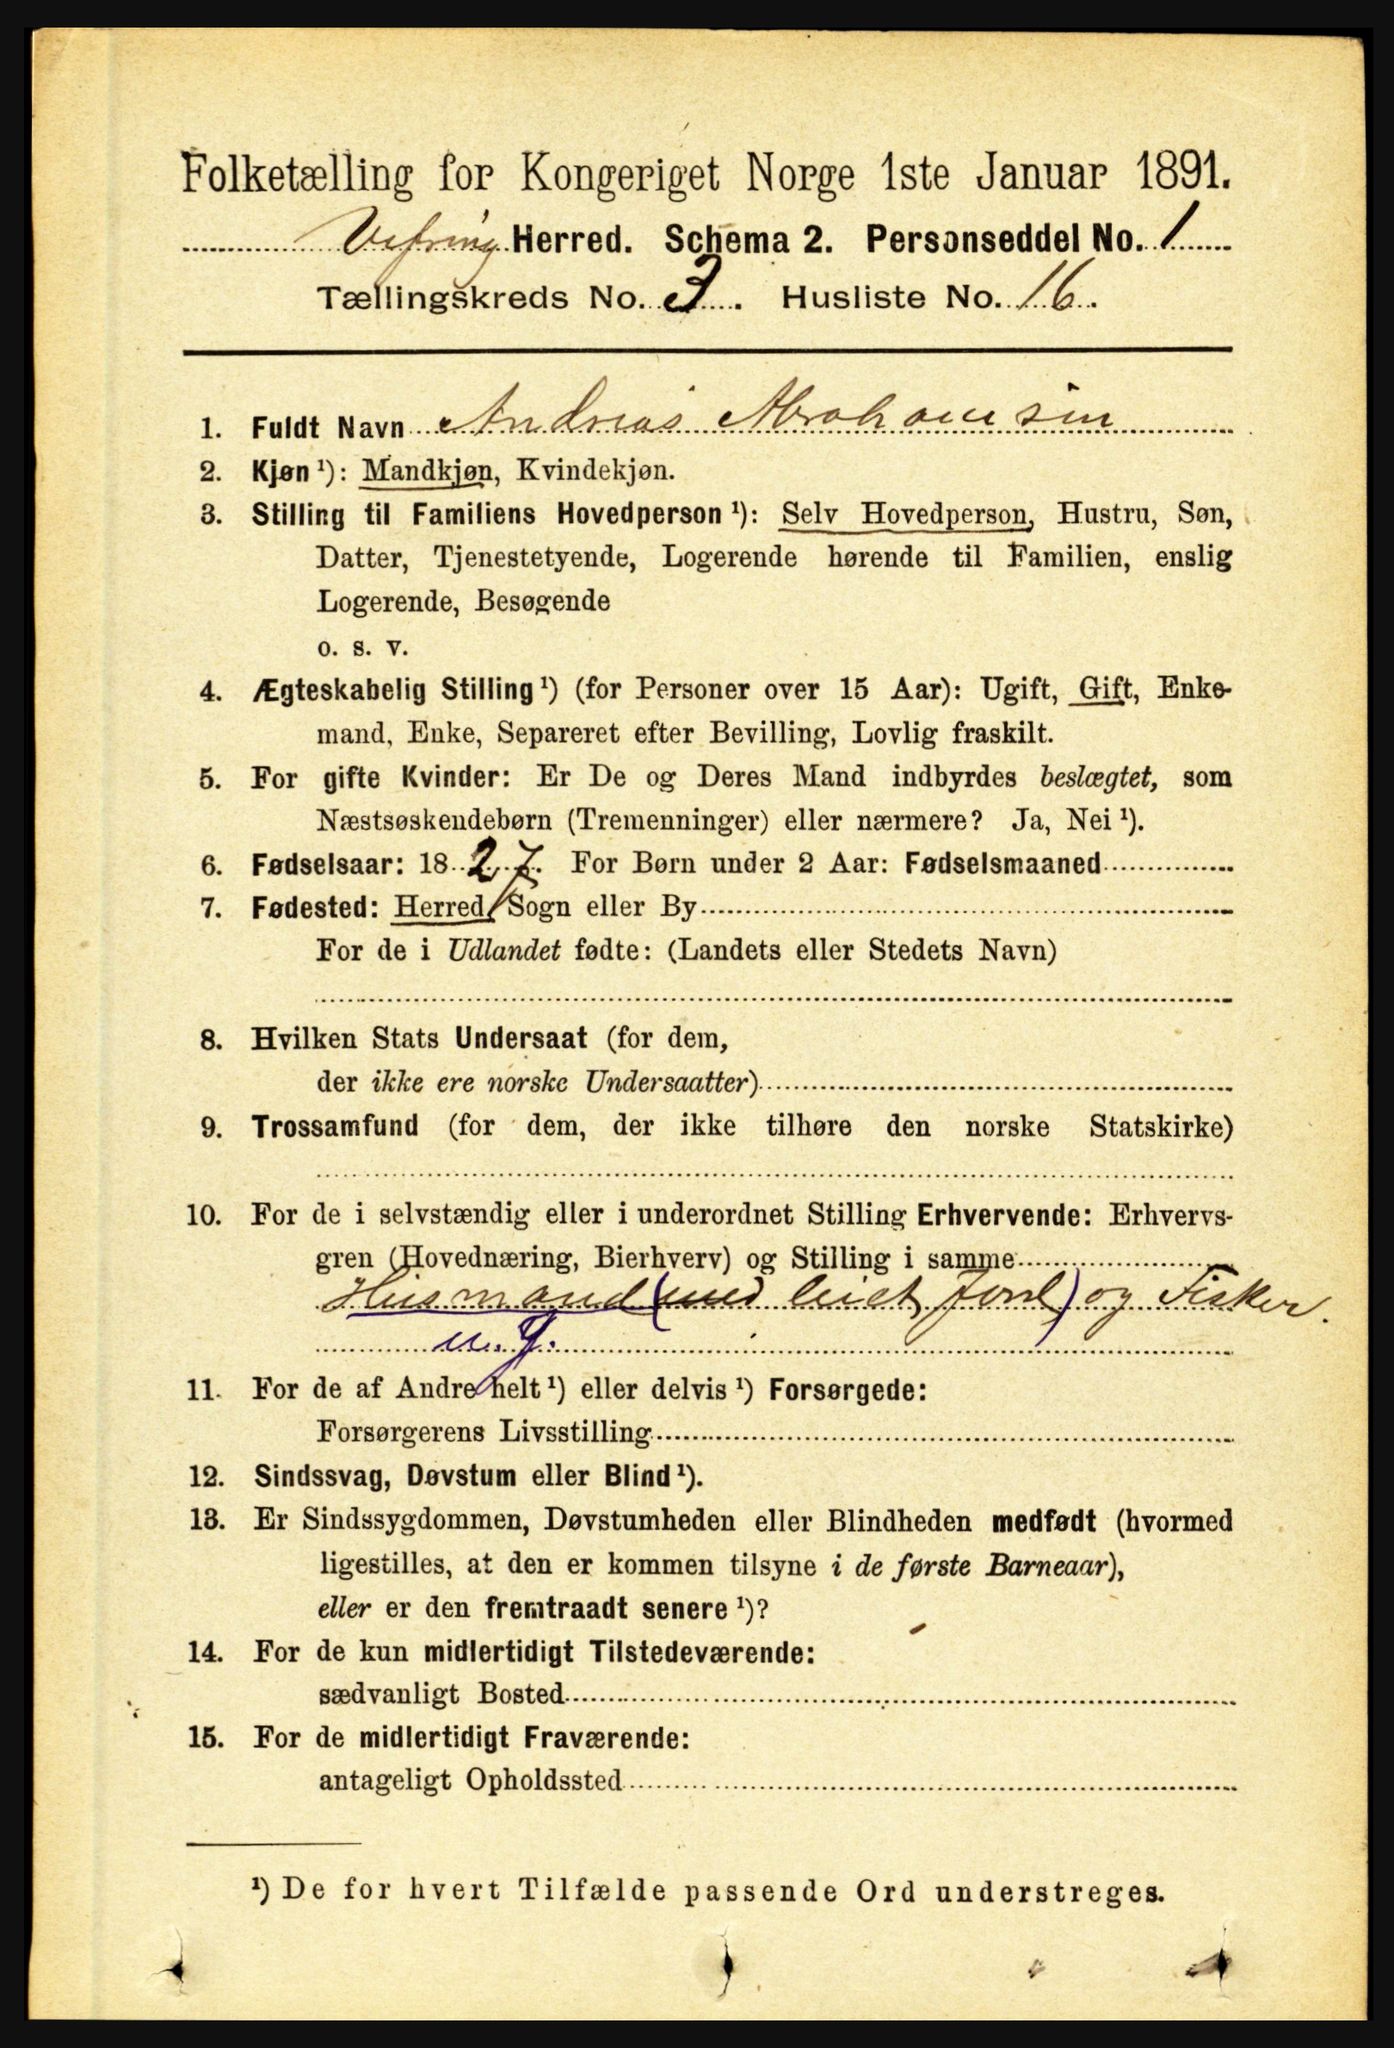 Folketælling for Kongeriget Norge 1ste Januar 1891.
Vefring Herred. Schema 2. Personseddel No. 1
Tællingskreds No. 3. Husliste No. 16.
1. Fuldt Navn Andreas Abrahamsen
2. Kjøn ¹): Mandkjøn, Kvindekjøn.
3. Stilling til Familiens Hovedperson ¹): Selv Hovedperson, Hustru, Søn,
Datter, Tjenestetyende, Logerende hørende til Familien, enslig
Logerende, Besøgende
o. s. v.
4. Ægteskabelig Stilling ¹) (for Personer over 15 Aar): Ugift, Gift, Enke-
mand, Enke, Separeret efter Bevilling, Lovlig fraskilt.
5. For gifte Kvinder: Er De og Deres Mand indbyrdes beslægtet, som
Næstsøskendebørn (Tremenninger) eller nærmere? Ja, Nei ¹).
6. Fødselsaar: 1827. For Børn under 2 Aar: Fødselsmaaned
7. Fødested: Herred, Sogn eller By
For de i Udlandet fødte: (Landets eller Stedets Navn)
8. Hvilken Stats Undersaat (for dem,
der ikke ere norske Undersaatter)
9. Trossamfund (for dem, der ikke tilhøre den norske Statskirke)
10. For de i selvstændig eller i underordnet Stilling Erhvervende: Erhvervs-
gren (Hovednæring, Bierhverv) og Stilling i samme
Husmand (med leiet Jord) og Fisker.
m. J.
11. For de af Andre helt ¹) eller delvis ¹) Forsørgede:
Forsørgerens Livsstilling
12. Sindssvag, Døvstum eller Blind ¹).
13. Er Sindssygdommen, Døvstumheden eller Blindheden medfødt (hvormed
ligestilles, at den er kommen tilsyne i de første Barneaar),
eller er den fremtraadt senere ¹)?
14. For de kun midlertidigt Tilstedeværende:
sædvanligt Bosted
15. For de midlertidigt Fraværende:
antageligt Opholdssted
¹) De for hvert Tilfælde passende Ord understreges.